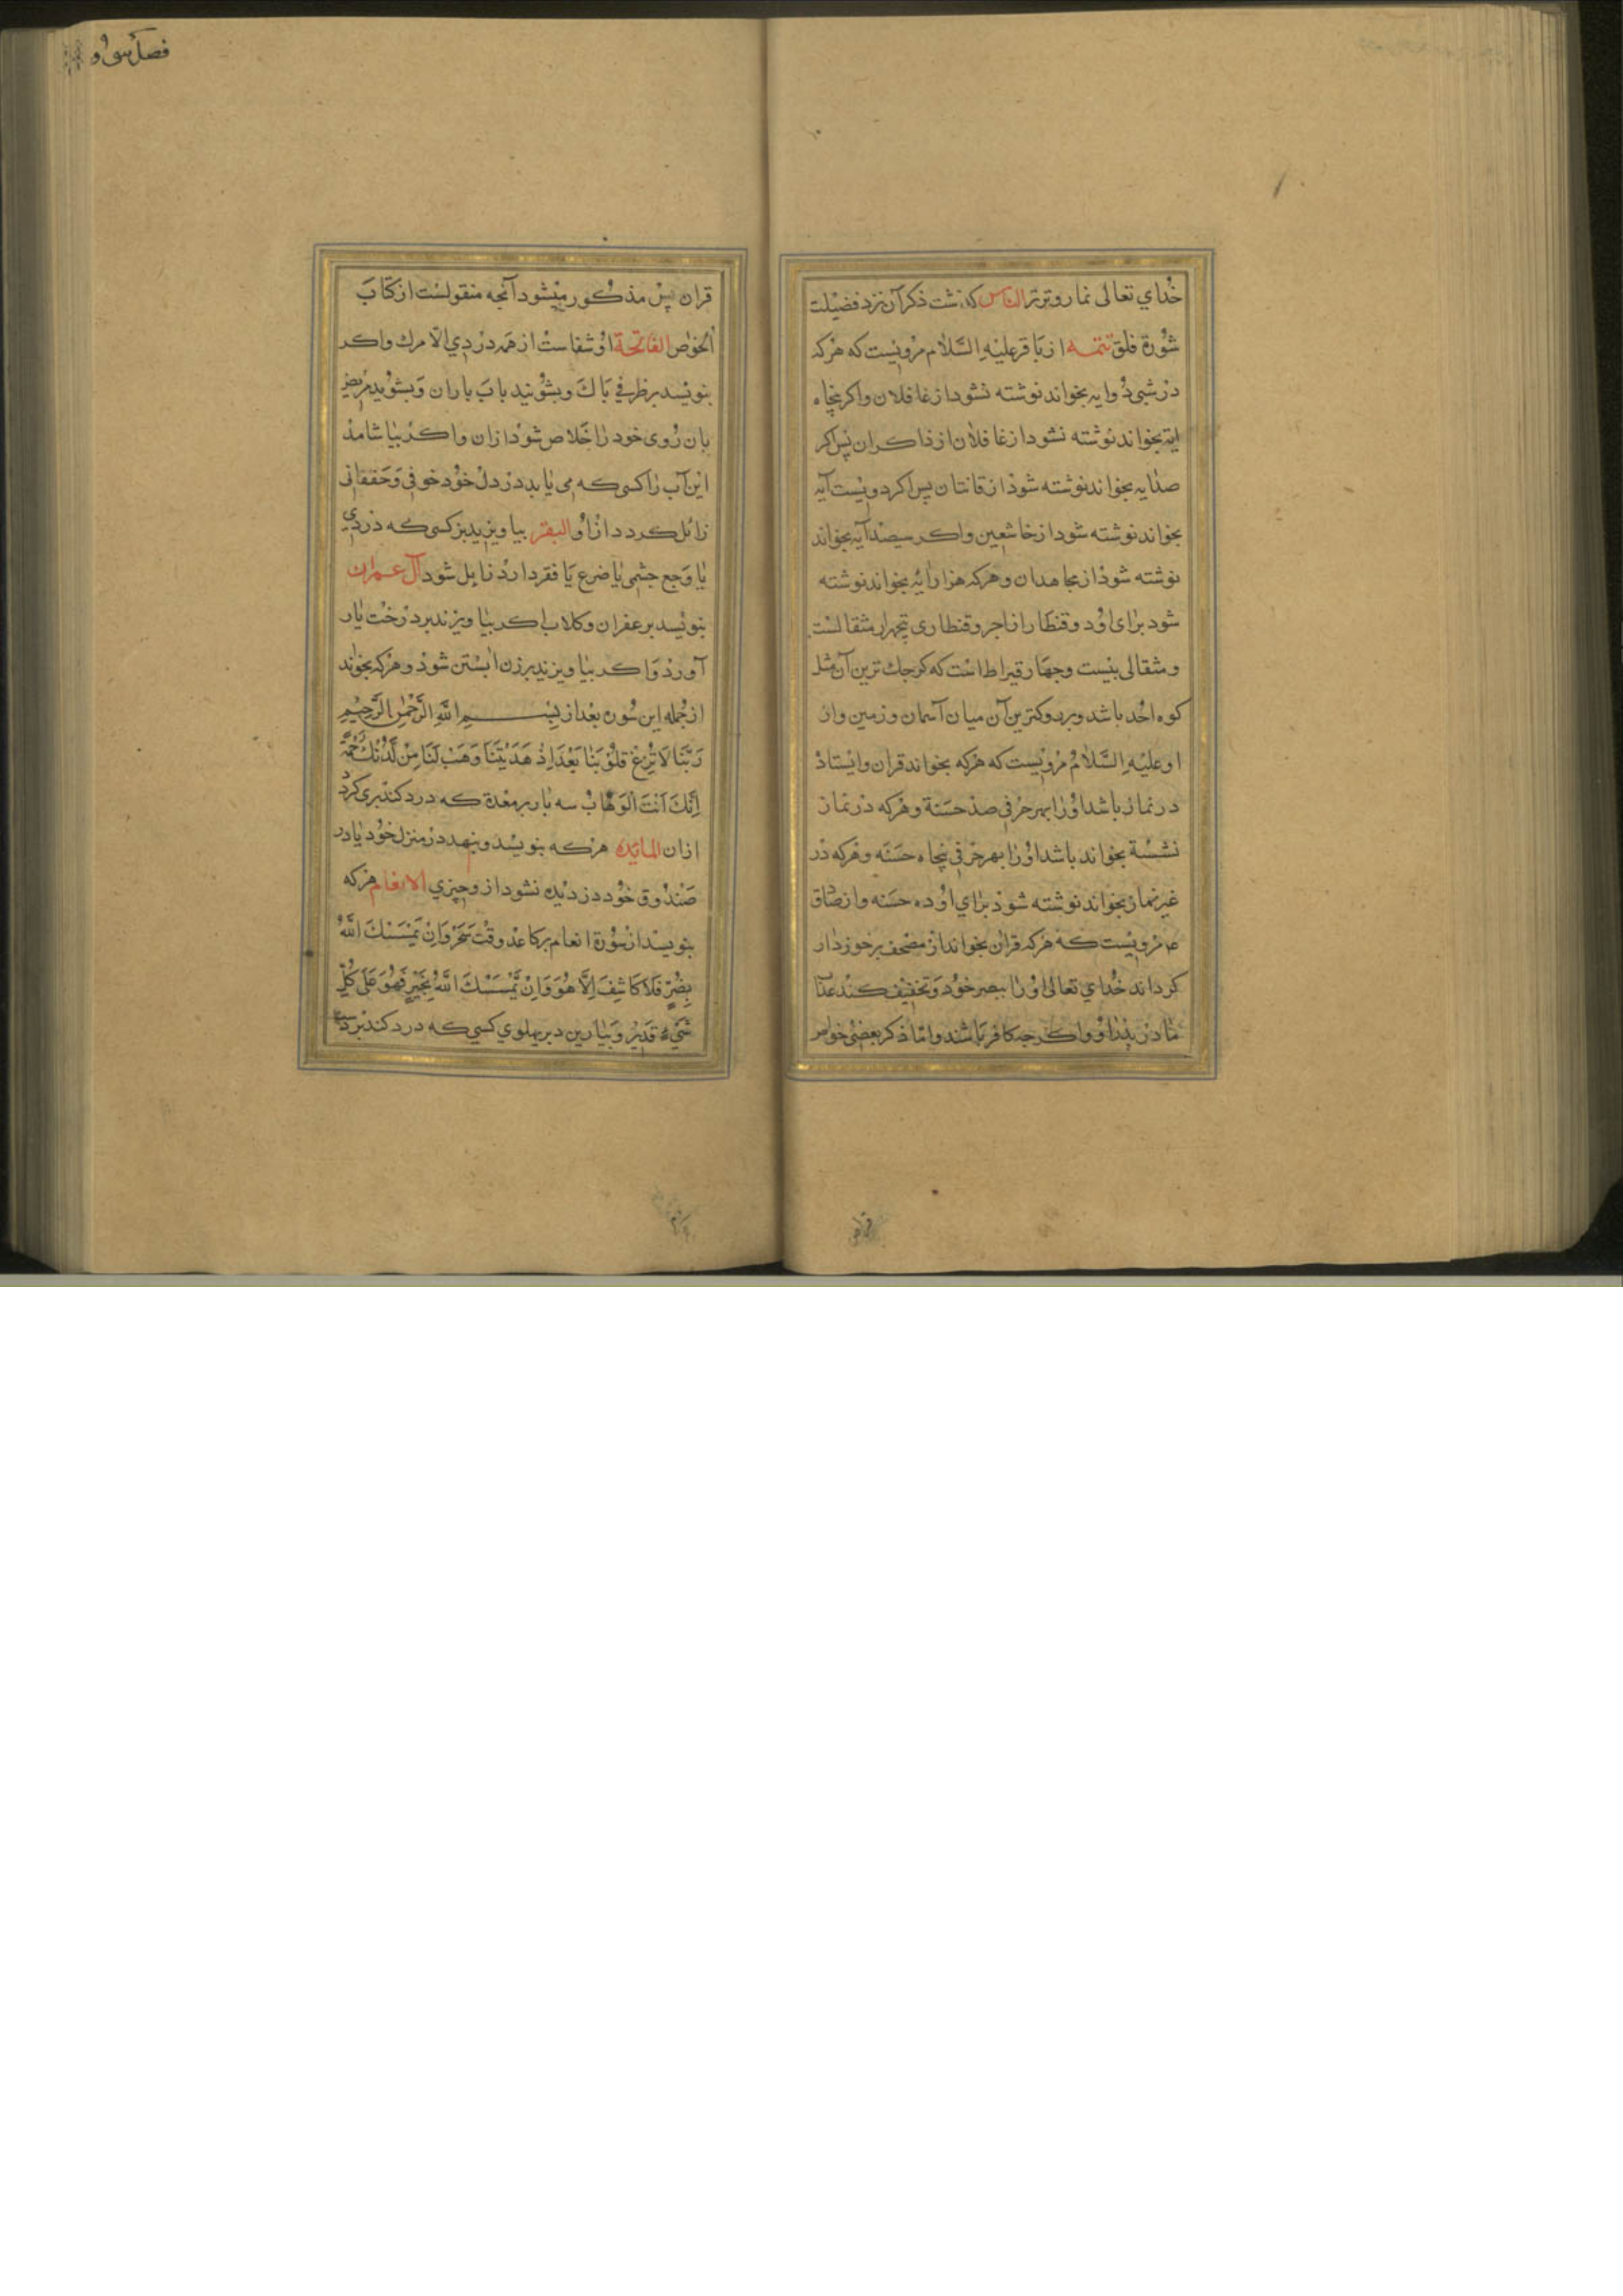 خُداي تعالی نما روترتر الناس که نشت ذکر آن نزد فضیلت
سُورة فلق تتمـه از باقر علیه السَّلام مرویست که هرکه
در شبی ده ایه بخواند نوشته نشود از غافلان واکر پنجاه
ایة بخواند نوشته نشود از غافلان از ذاکران پس اکر
صدایه بخواند نوشته شود از قانتان پس اکر دویست آیه
بخواند نوشته شود از خاشعین واکر سیصد آیه بخواند
نوشته شود از مجاهدان وهرکه هزار ایه بخواند نوشته
شود برای اود وقنطار از اجر وقنطاری پنجهزار مثقالست
ومثقالی بیست وچهار قیراط است که کوچک ترین آن مثل
کوه اُحُد باشد وبزرکترین آن میان آسمان وزمین واز
او علیه السَّلام مرویست که هرکه بخواند قران وایستاد
در نماز باشد اورا بهر حرفی صد حسنة وهرکه در نماز
نشسته بخواند باشد اورا بهر حرفی پنجاه حسنه وهرکه در
غیر نماز بخواند نوشته شود برای او ده حسنه واز صادق
ع م مرویست که هرکه قران بخواند از مصحف برخوردار
کرداند خُداي تعالی اورا ببصر خود وتخفیف کند عذاب
مادر پدر او واکرچه کافر باشند وامّا ذکر بعضی خواص
قران پس مذکور میشود آنچه منقولست از کتاب
الخواص الفاتحة او شفاست از همه دردي الا مرك واکر
بنویسد بر ظرفي پاك وبشوئید باب باران وبشوید مریض
بان روی خود را خلاص شود ازان واکر بیاشامد
این آب را کسی که می یابد در دل خود خوفی وخفقانی
زائل کردد از او البقر بیاویزید بر کسی که دردي
یا وجع چشمی یا ضرع یا فقر دارد زایل شود آل عمران
بنویسد بزعفران وکلاب اکر بیاویزند بر درخت بار
آورد واکر بیاویزند بر زن ابستن شود وهرکه بخواند
از جمله این سوره بعد از بِسْمِ اللَّهِ الرَّحْمٰنِ الرَّحِیمِ
رَبَّنَا لَا تُزِغْ قُلُوبَنَا بَعْدَ اِذْ هَدَیْتَنَا وَهَبْ لَنَا مِنْ لَدُنْكَ رَحْمَةً
اِنَّكَ اَنْتَ الْوَهَّابُ سه بار بر معدة که درد کند بری کردد
ازان المائیده هرکه بنویسد وبنهد در منزل خود یا در
صندوق خود دزدیده نشود ازو چیزي الانعام هرکه
بنویسد از سُورة انعام بر کاغذ وقت سَحَر وَاِنْ یَمْسَسْكَ اللَّهُ
بِضُرٍّ فَلَا کَاشِفَ اِلَّا هُوَ وَاِنْ یَمْسَسْكَ اللَّهُ بِخَیْرٍ فَهُوَ عَلَی کُلِّ
شَیْءٍ قَدِیرٌ وبیاویزد بر پهلوي کسی که درد کند بردد